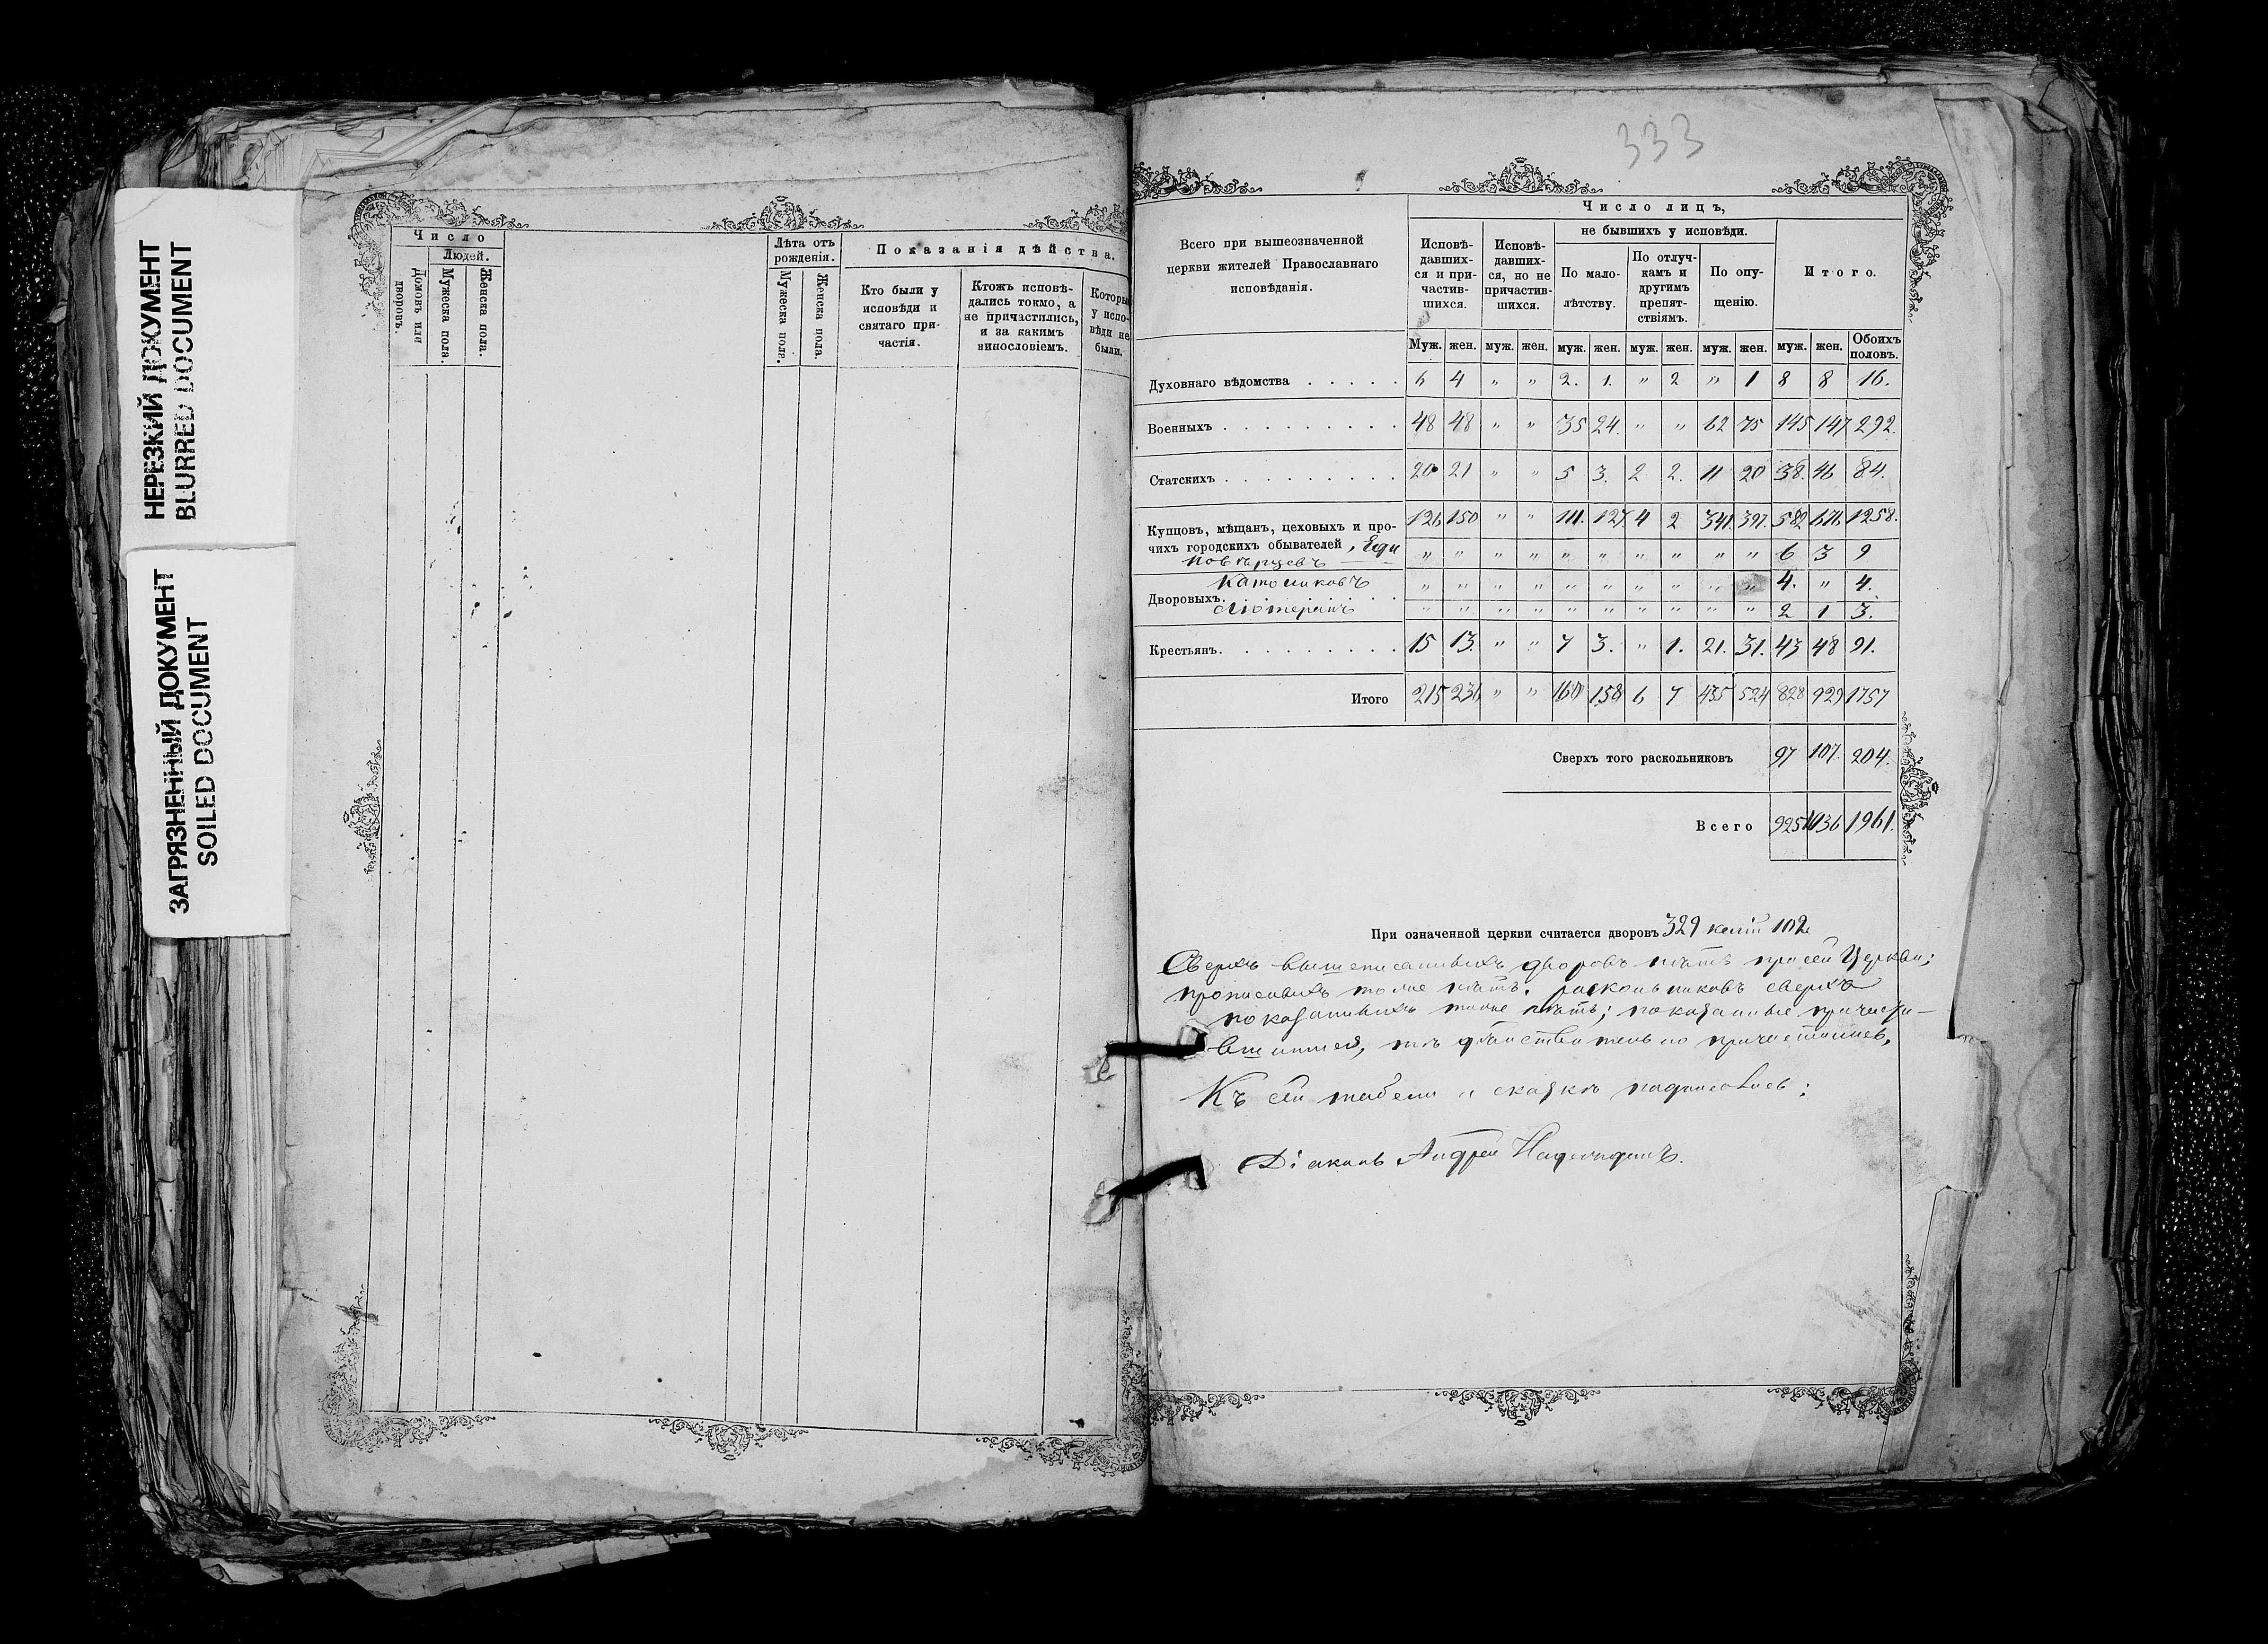 НЕРЕЗКИЙ ДОКУМЕНТ
BLURRED DOCUMENT
ЗАГРЯЗНЕННЫЙ ДОКУМЕНТ
SOILED DOCUMENT
Число
Людей.
Домовъ или дворовъ.
Мужеска пола.
Женска пола.
Лѣта отъ рожденія.
Мужеска пола.
Женска пола.
Показанія дѣйства.
Кто были у исповѣди и святаго причастія.
Ктожъ исповѣдались токмо, а не причастились, и за какимъ винословіемъ.
у исповѣди не были.
333
Всего при вышеозначенной
церкви жителей Православнаго
исповѣданія.
Число лицъ,
Исповѣ-
давших-
ся и при-
частив-
шихся.
Исповѣ-
давших-
ся, но не
причастив-
шихся.
не бывшихъ у исповѣди.
По мало-
лѣтству.
По отлуч-
камъ и
другимъ
препят-
ствіямъ.
По опу-
щенію.
Итого.
Муж. жен. муж. жен. муж. жен. муж. жен. муж. жен. муж. жен. Обоихъ половъ.
Духовнаго вѣдомства . . . . . 6 4 " " 2. 1. " 2 " 1 8 8 16.
Военныхъ . . . . . . . . . 48 48 " " 35 24. " " 62 75 145 147 292.
Статскихъ . . . . . . . . . 20 21 " " 5 3. 2 2. 11 20 38. 46 84.
Купцовъ, мѣщанъ, цеховыхъ и про- 126 150 " " 111. 127 4 2 341. 397. 582 676 1258.
чихъ городскихъ обывателей, Еди " " " " " " " " " " 6 3 9
новѣрцевъ
Католиковъ " " " " " " " " " " 4. " 4.
Дворовыхъ.
Лютеранъ " " " " " " " " " " 2 1 3.
Крестьянъ. . . . . . . . . 15 13. " " 7 3. " 1. 21. 31. 43 48 91.
Итого 215 236 " " 160 158 6 7 435 524 828 929 1757
Сверхъ того раскольниковъ 97 107. 204.
Всего 925 1036 1961.
При означенной церкви считается дворовъ 329 келій 102
Сверхъ вышеписанныхъ дворовъ нѣтъ при сей Церкви;
прописныхъ тоже нѣтъ. раскольниковъ сверхъ
показанныхъ тоже нѣтъ; показанные причасти-
вшимися, тѣ дѣйствительно причастились.
Къ сей табели и сказкѣ подписались:
Діаконъ Андрей